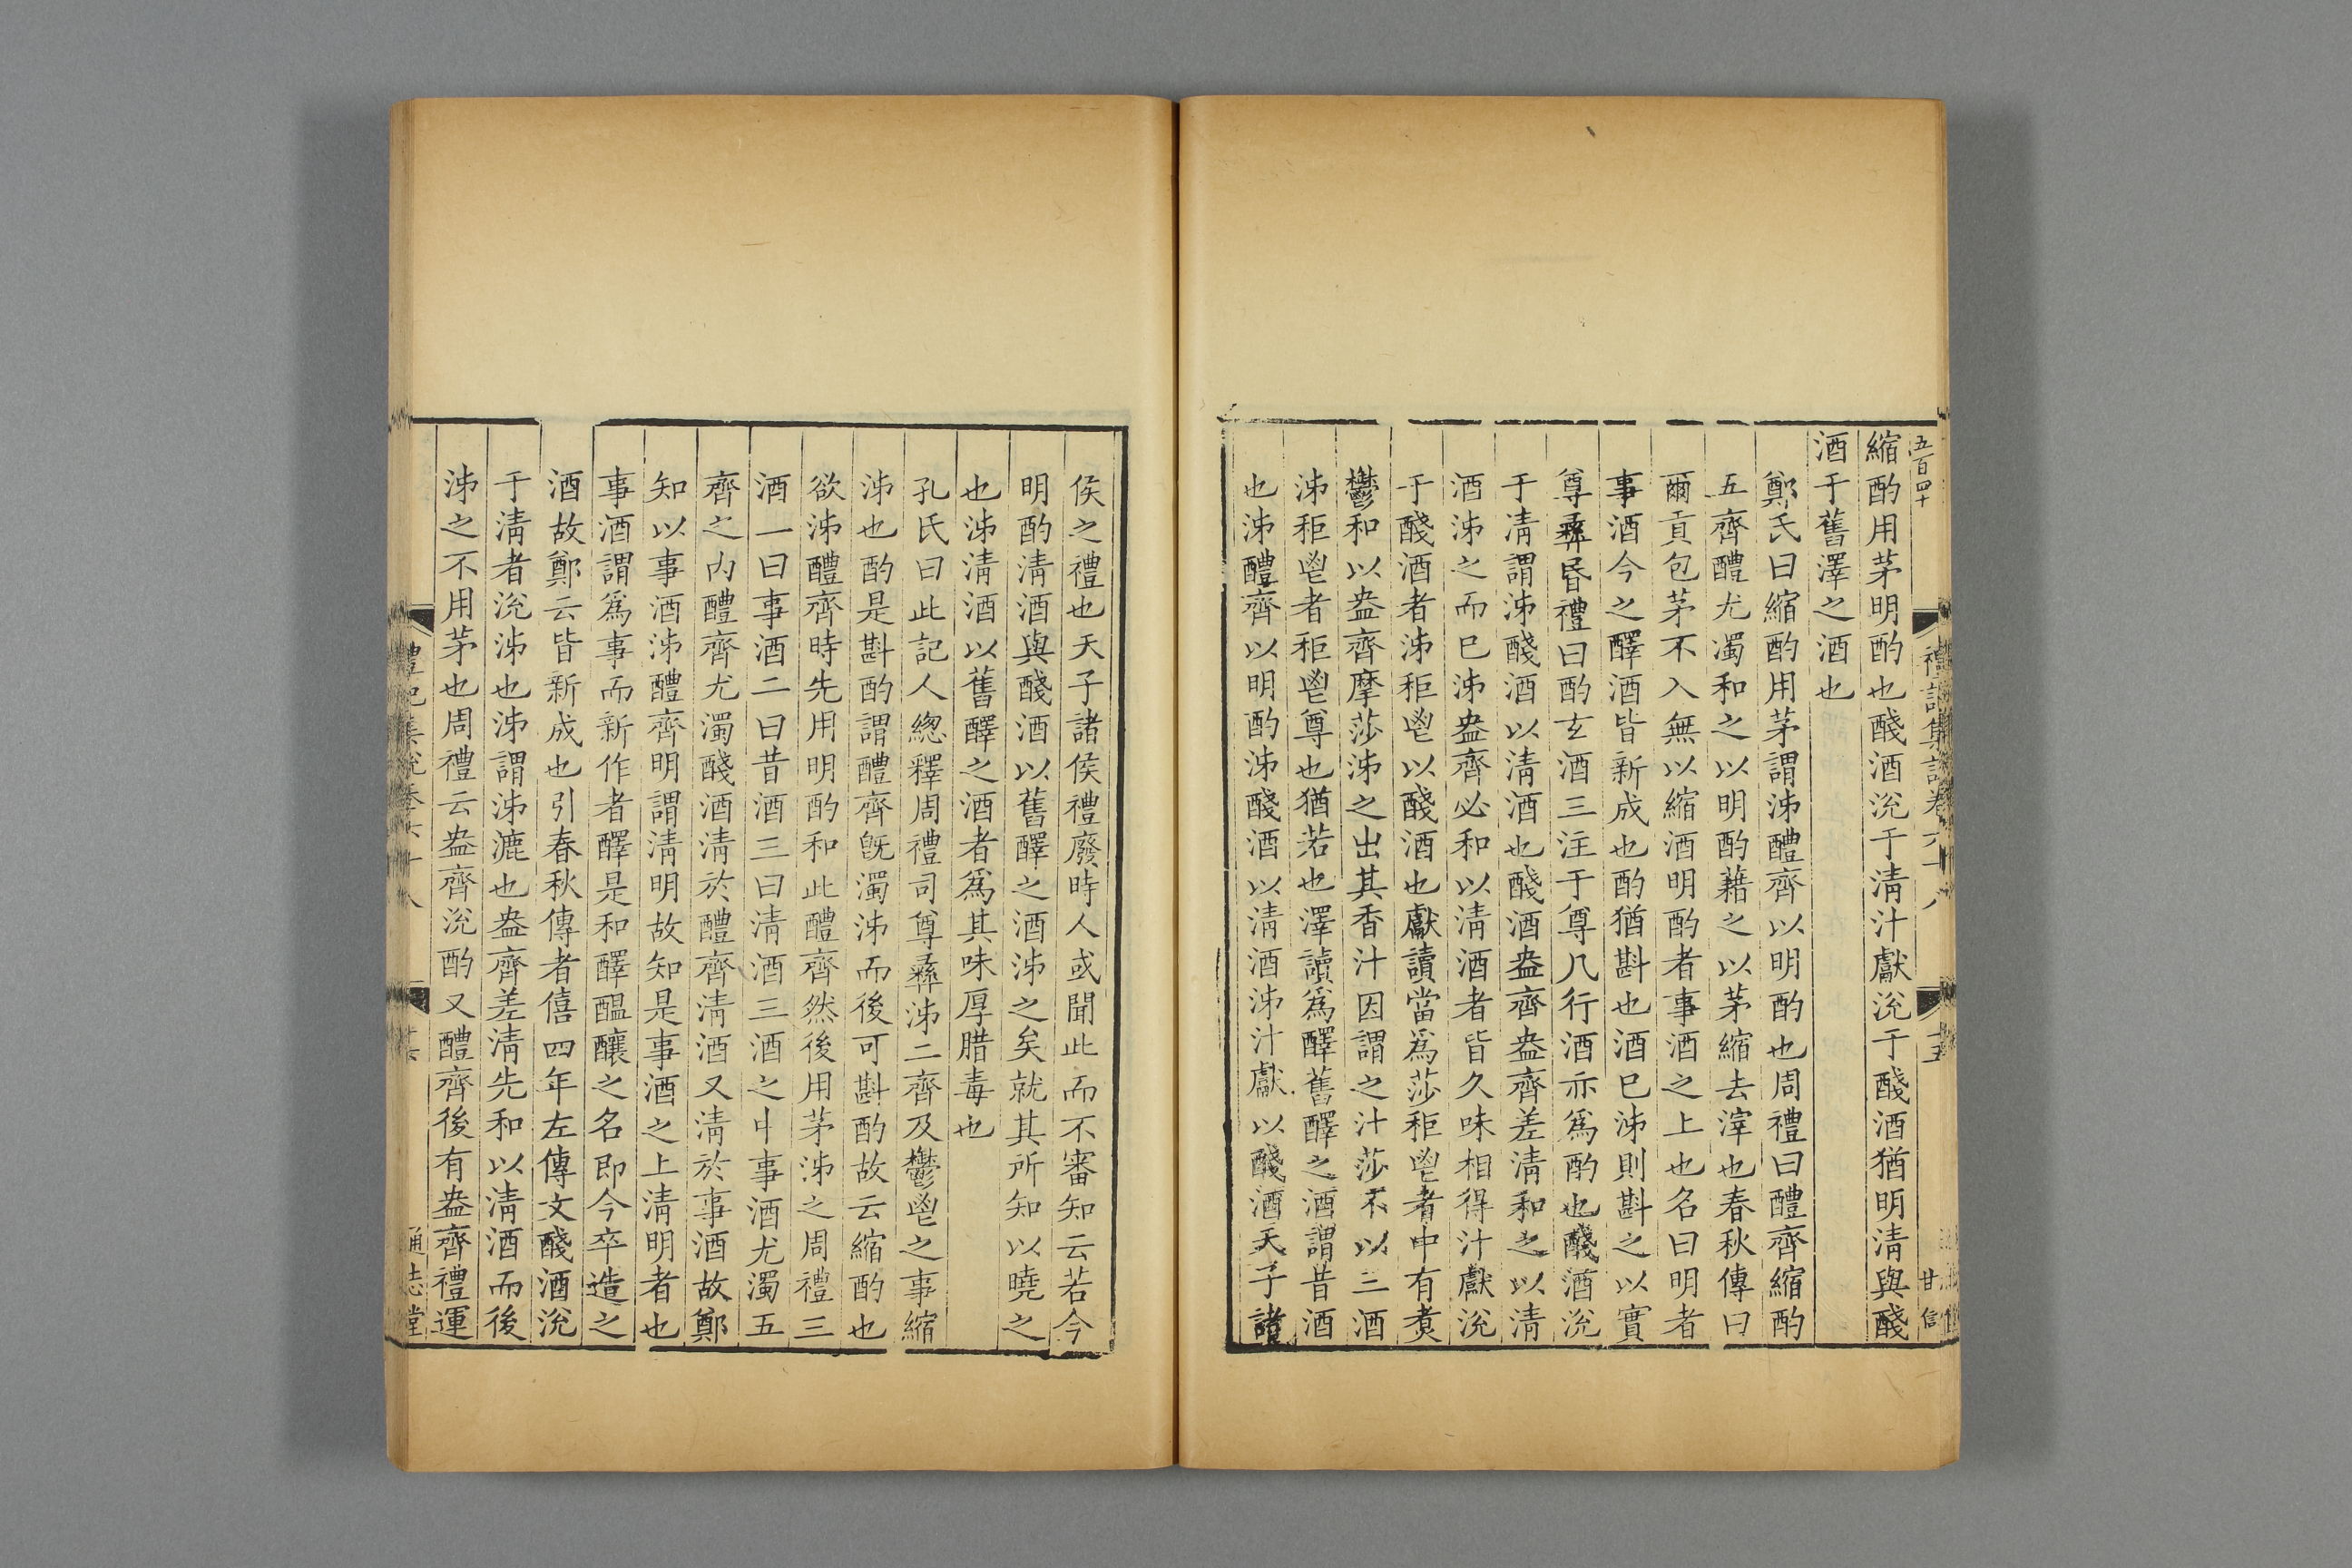 五百四十
禮記集說卷六十八
十五
甘信
縮酌用茅明酌也醆酒涚于淸汁獻涚于醆酒猶明淸與醆
酒于舊澤之酒也
鄭氏曰縮酌用茅謂泲醴齊以明酌也周禮曰醴齊縮酌
五齊醴尤濁和之以明酌藉之以茅縮去滓也春秋傳曰
爾貢包茅不入無以縮酒明酌者事酒之上也名曰明者
事酒今之醳酒皆新成也酌猶斟也酒巳泲則斟之以實
尊彝昏禮曰酌玄酒三注于尊凡行酒亦爲酌也醆酒涚
于淸謂泲醆酒以淸酒也醆酒盎齊盎齊差淸和之以淸
酒泲之而巳泲盎齊必和以淸酒者皆久味相得汁獻涚
于醆酒者泲秬鬯以醆酒也獻讀當爲莎秬鬯者中有煑
鬱和以盎齊摩莎泲之出其香汁因謂之汁莎不以三酒
泲秬鬯者秬鬯尊也猶若也澤讀爲醳舊醳之酒謂昔酒
也泲醴齊以明酌泲醆酒以淸酒泲汁獻以醆酒天子諸
侯之禮也天子諸侯禮廢時人或聞此而不審知云若今
明酌淸酒與醆酒以舊醳之酒泲之矣就其所知以曉之
也泲淸酒以舊醳之酒者爲其味厚腊毒也
孔氏曰此記人緫釋周禮司尊彝泲二齊及鬱鬯之事縮
泲也酌是斟酌謂醴齊旣濁泲而後可斟酌故云縮酌也
欲泲醴齊時先用明酌和此醴齊然後用茅泲之周禮三
酒一曰事酒二曰昔酒三曰淸酒三酒之中事酒尤濁五
齊之內醴齊尤濁醆酒淸於醴齊淸酒又淸於事酒故鄭
知以事酒泲醴齊明謂淸明故知是事酒之上淸明者也
事酒謂爲事而新作者醳是和醳醞釀之名即今卒造之
酒故鄭云皆新成也引春秋傳者僖四年左傳文醆酒涚
于淸者涚泲也泲謂泲漉也盎齊差淸先和以淸酒而後
泲之不用茅也周禮云盎齊涚酌又醴齊後有盎齊禮運
禮記集說卷六十八
通志堂